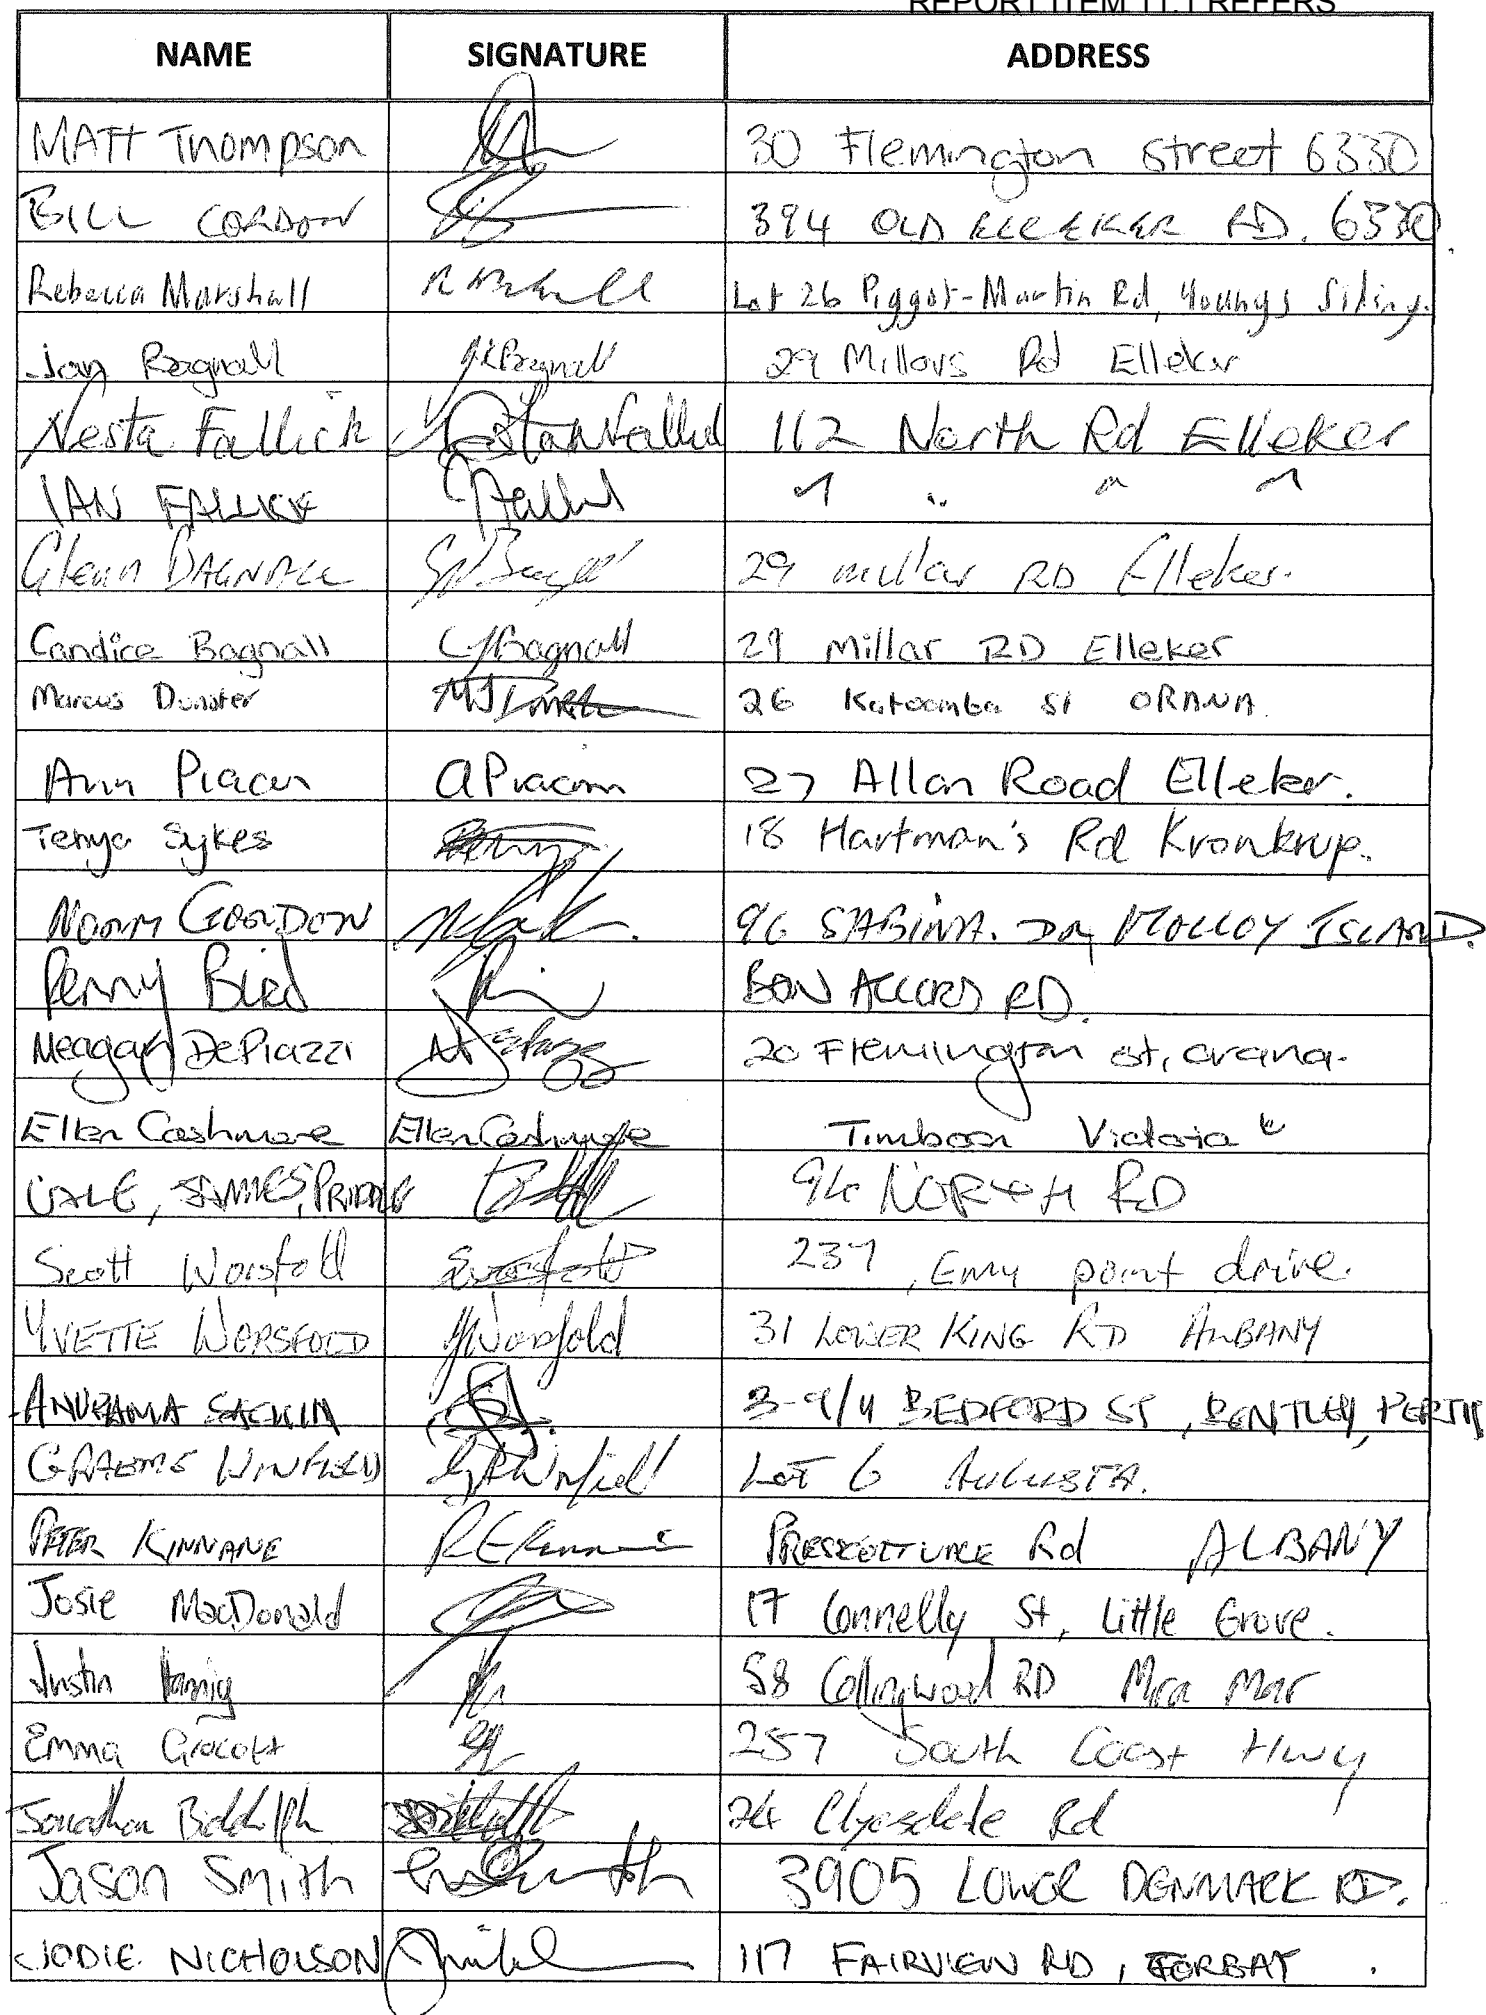 REPORT ITEM 11.1 REFERS
NAME SIGNATURE ADDRESS
MATT Thompson 30 Flemington street 6330
BILL GORDON 394 OLD ELLEKER RD. 6330.
Rebecca Marshall R Marshall Lot 26 Piggot-Martin Rd, Youngs Siding.
Jan Bagnall JLBagnall 29 Millars Rd Elleker
Nesta Fallick 112 North Rd Elleker
IAN FALLICK " " " "
Glenn BAGNALL 29 millar RD Elleker.
Candice Bagnall CJBagnall 29 Millar RD Elleker
Marcus Dunster 26 Katoomba St ORANA
Ann Piacun a Piacun 27 Allan Road Elleker.
Tenya Sykes 18 Hartman's Rd Kronkrup.
NORM GORDON 96 SABINA. DR, MOLLOY ISLAND.
Penny Bird BON ACCORD RD.
Meagan DePiazzi 20 Flemington st, orana.
Ellen Cashmore Ellen Cashmore Timboon Victoria
JAMES, 94 NORTH RD
Scott Worsfold SWorsfold 237, Emu point drive.
YVETTE WORSFOLD YWorsfold 31 LOWER KING RD ALBANY
ANUPAMA SACKIM 3-9/4 BEDFORD ST, BENTLEY, PERTH
GRAEME WINFIELD Winfield LOT 6 AUGUSTA.
PETER KINNANE Rd ALBANY
Josie MacDonald 17 Connelly St, Little Grove.
Justin 58 Collingwood RD Mira Mar
Emma Grocott 257 South Coast Hwy
Jonathan Biddulph 24 Clydesdale Rd
Jason Smith 3905 LOWER DENMARK RD.
JODIE NICHOLSON 117 FAIRVIEW RD, TORBAY.